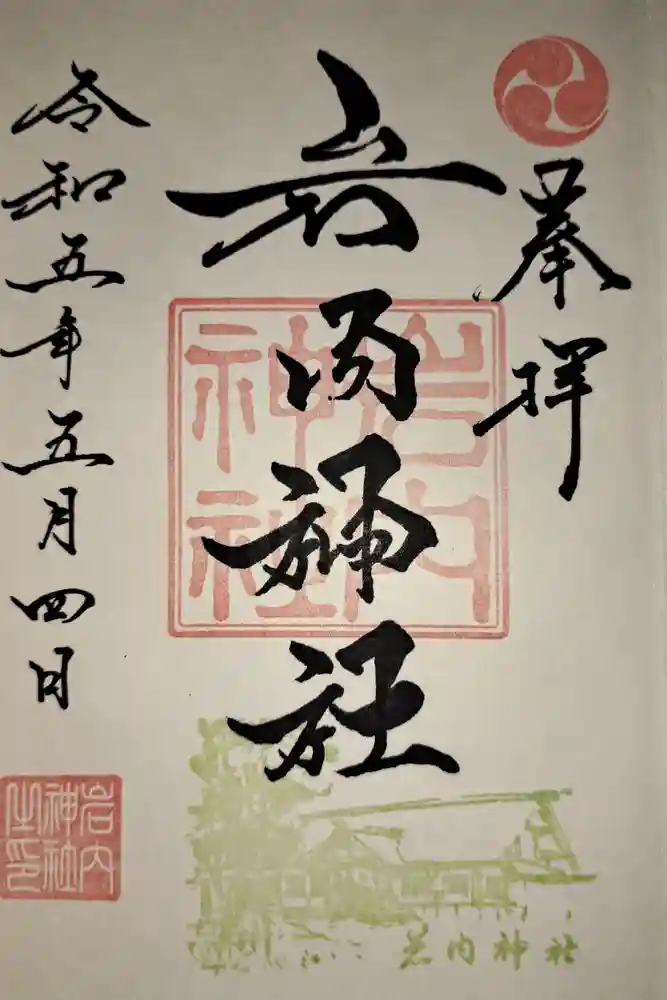 奉拝
岩内神社
令和五年五月四日
岩内神社
岩内神社之印
岩内神社